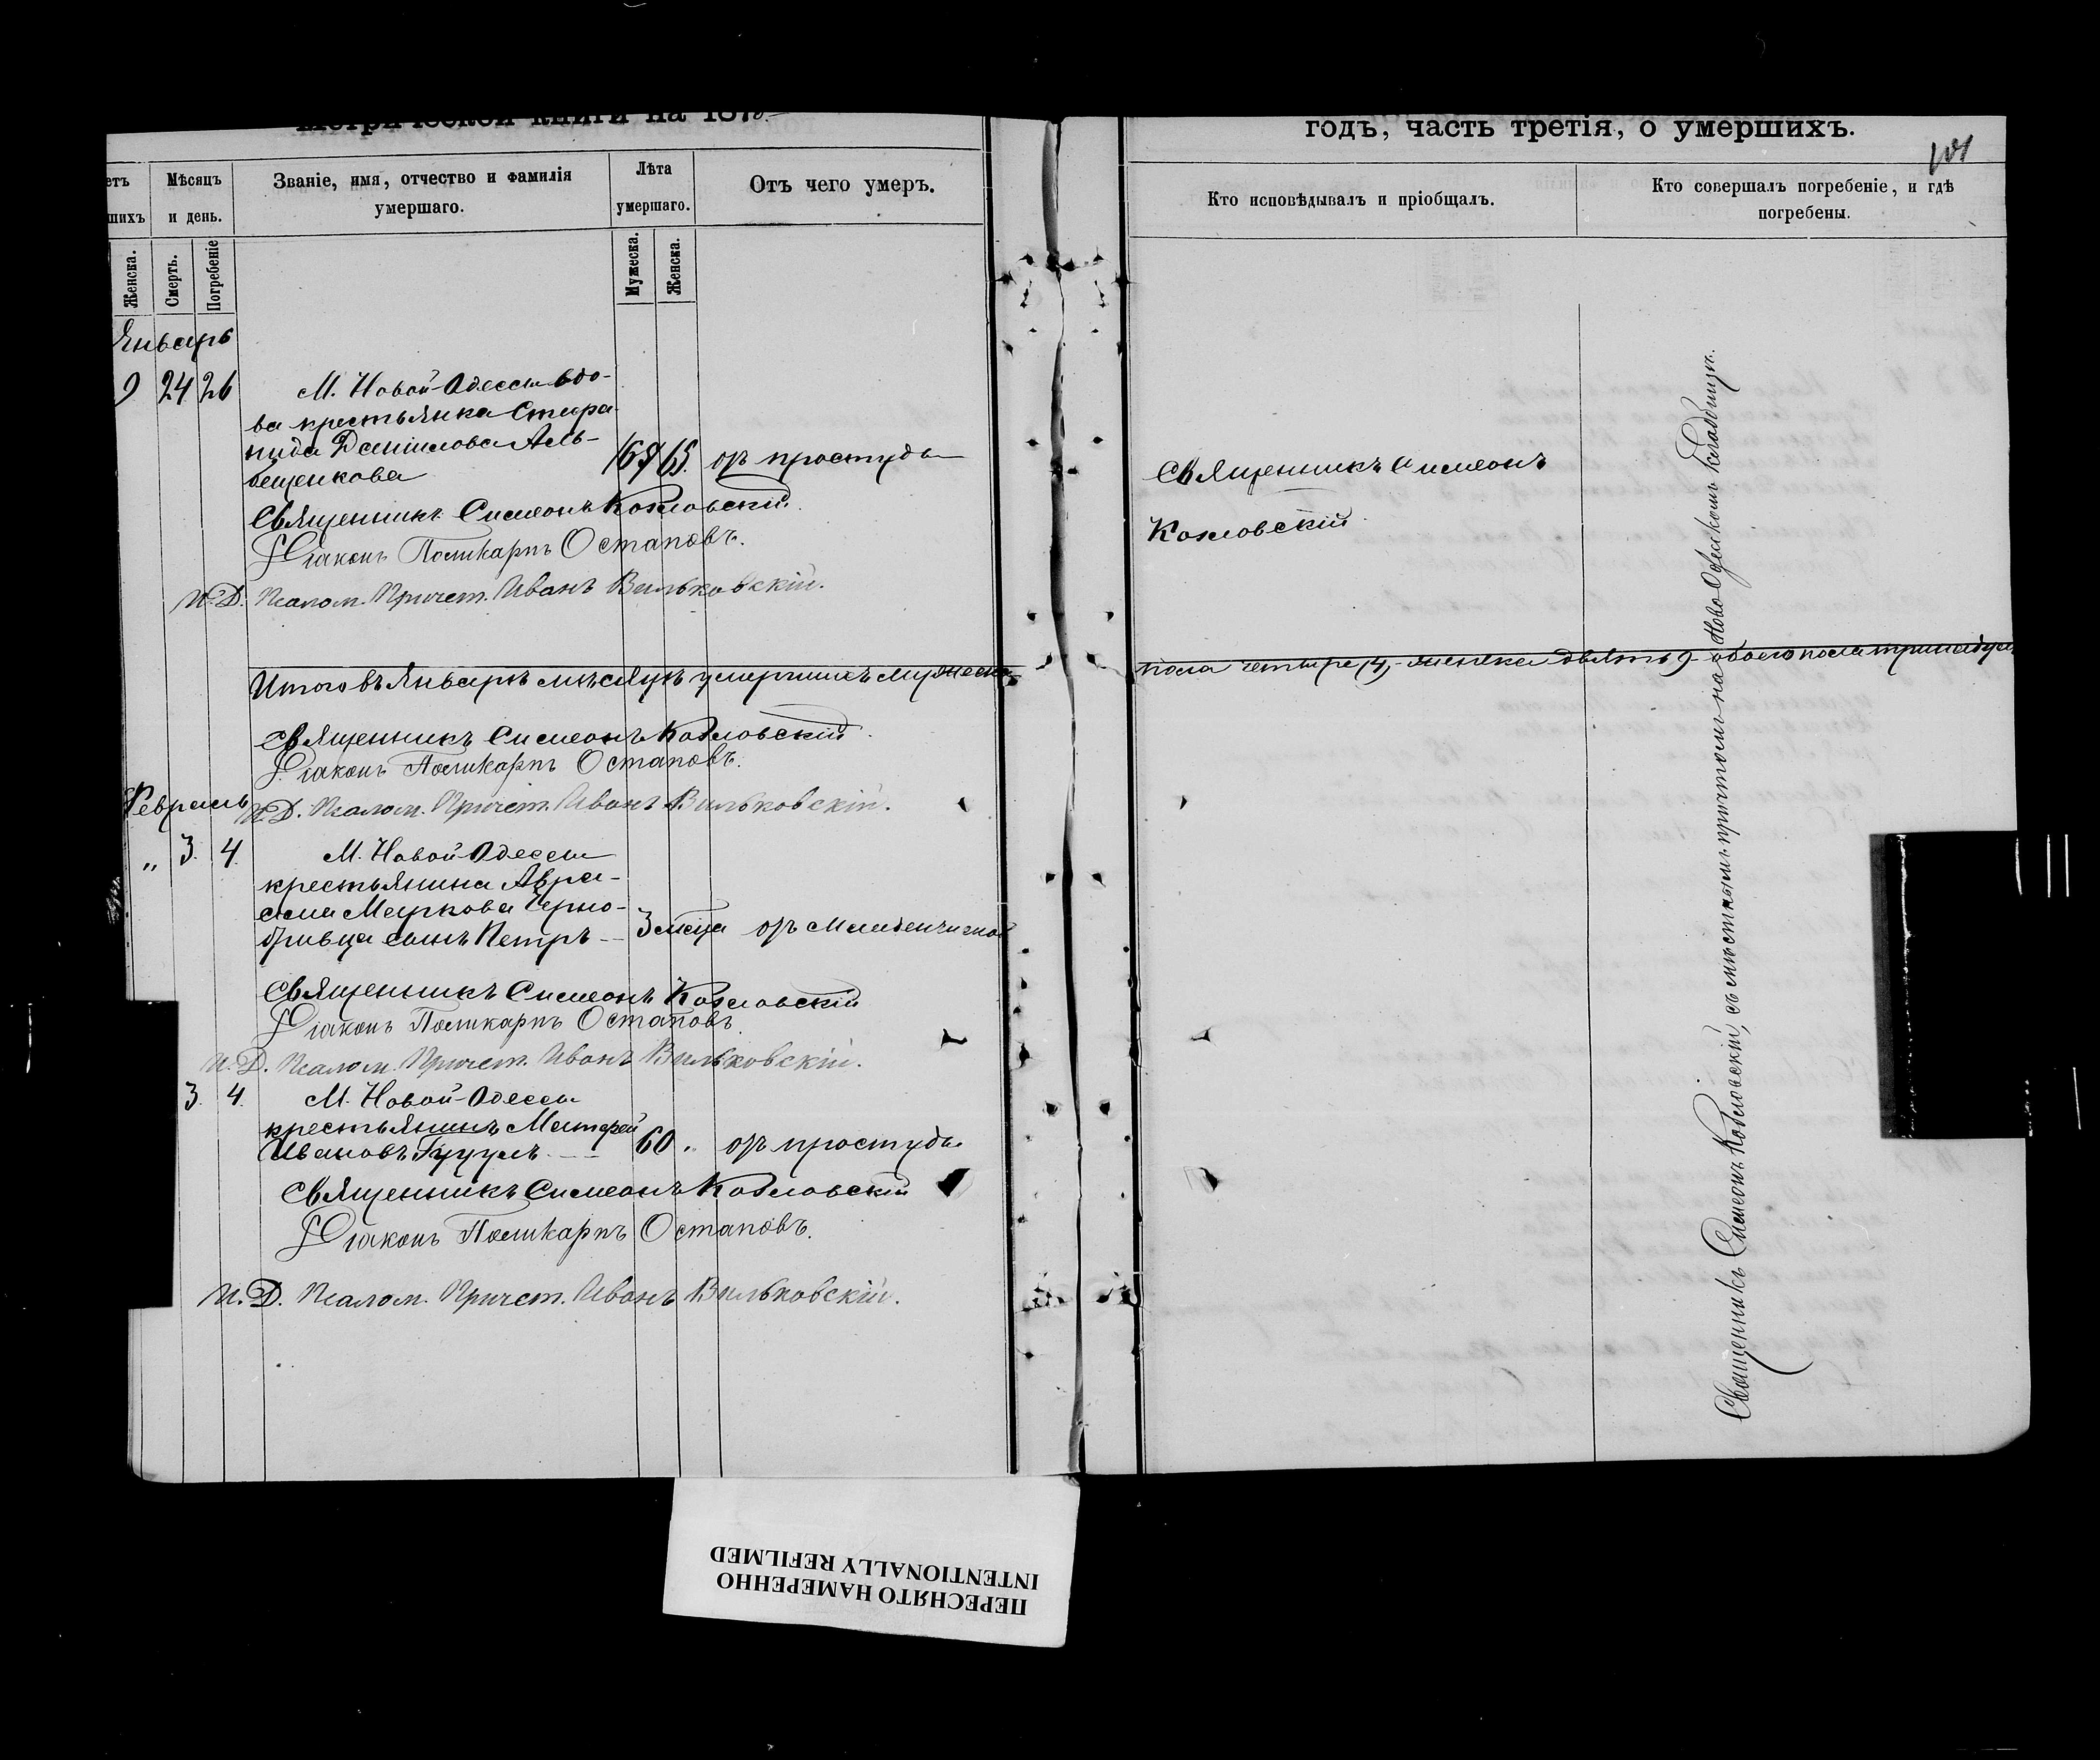 Метрической книги на 187
етъ
шихъ
Мѣсяцъ
и день.
Званіе, имя, отчество и фамилія
умершаго.
Лѣта
умершаго.
Отъ чего умеръ.
Женска.
Смерть.
Погребеніе
Мужеска.
Женска.
Январь
9 24 26
М. Новой-Одессы вдо-
ва крестьянка Стефа-
нида Даніилова
бещенкова
65. отъ простуды
Священникъ Симеонъ Козловскій.
Діаконъ Поликарпъ Остаповъ.
И. Д. Псалом. Причет. Иванъ Вильковскій.
Итого въ Январѣ мѣсяцѣ умершихъ мужеска
Священникъ Симеонъ Козловскій.
Діаконъ Поликарпъ Остаповъ.
Февраль
И. Д. Псалом. Причет. Иванъ Вильковскій.
„ 3. 4.
М. Новой-Одессы
крестьянина Авра-
ама Маркова Черно-
бривца сынъ Петръ —
3 мѣсца отъ Младенчиской
Священникъ Симеонъ Козловскій
Діаконъ Поликарпъ Остаповъ.
И. Д. Псалом. Причет. Иванъ Вильковскій.
3. 4.
М. Новой-Одессы
крестьянинъ Матфей
Ивановъ
60 „ отъ простуды
Священникъ Симеонъ Козловскій
Діаконъ Поликарпъ Остаповъ.
И. Д. Псалом. Причет. Иванъ Вильковскій.
годъ, часть третія, о умершихъ.
101
Кто исповѣдывалъ и пріобщалъ.
Кто совершалъ погребеніе, и гдѣ
погребены.
Священникъ Симеонъ
Козловскій.
пола четыре 4, женска девять 9 обоего пола
Священникъ Симеонъ Козловскій, съ мѣстнымъ причтомъ на Ново Одесскомъ кладбищѣ.
ПЕРЕСНЯТО НАМЕРЕННО
INTENTIONALLY REFILMED